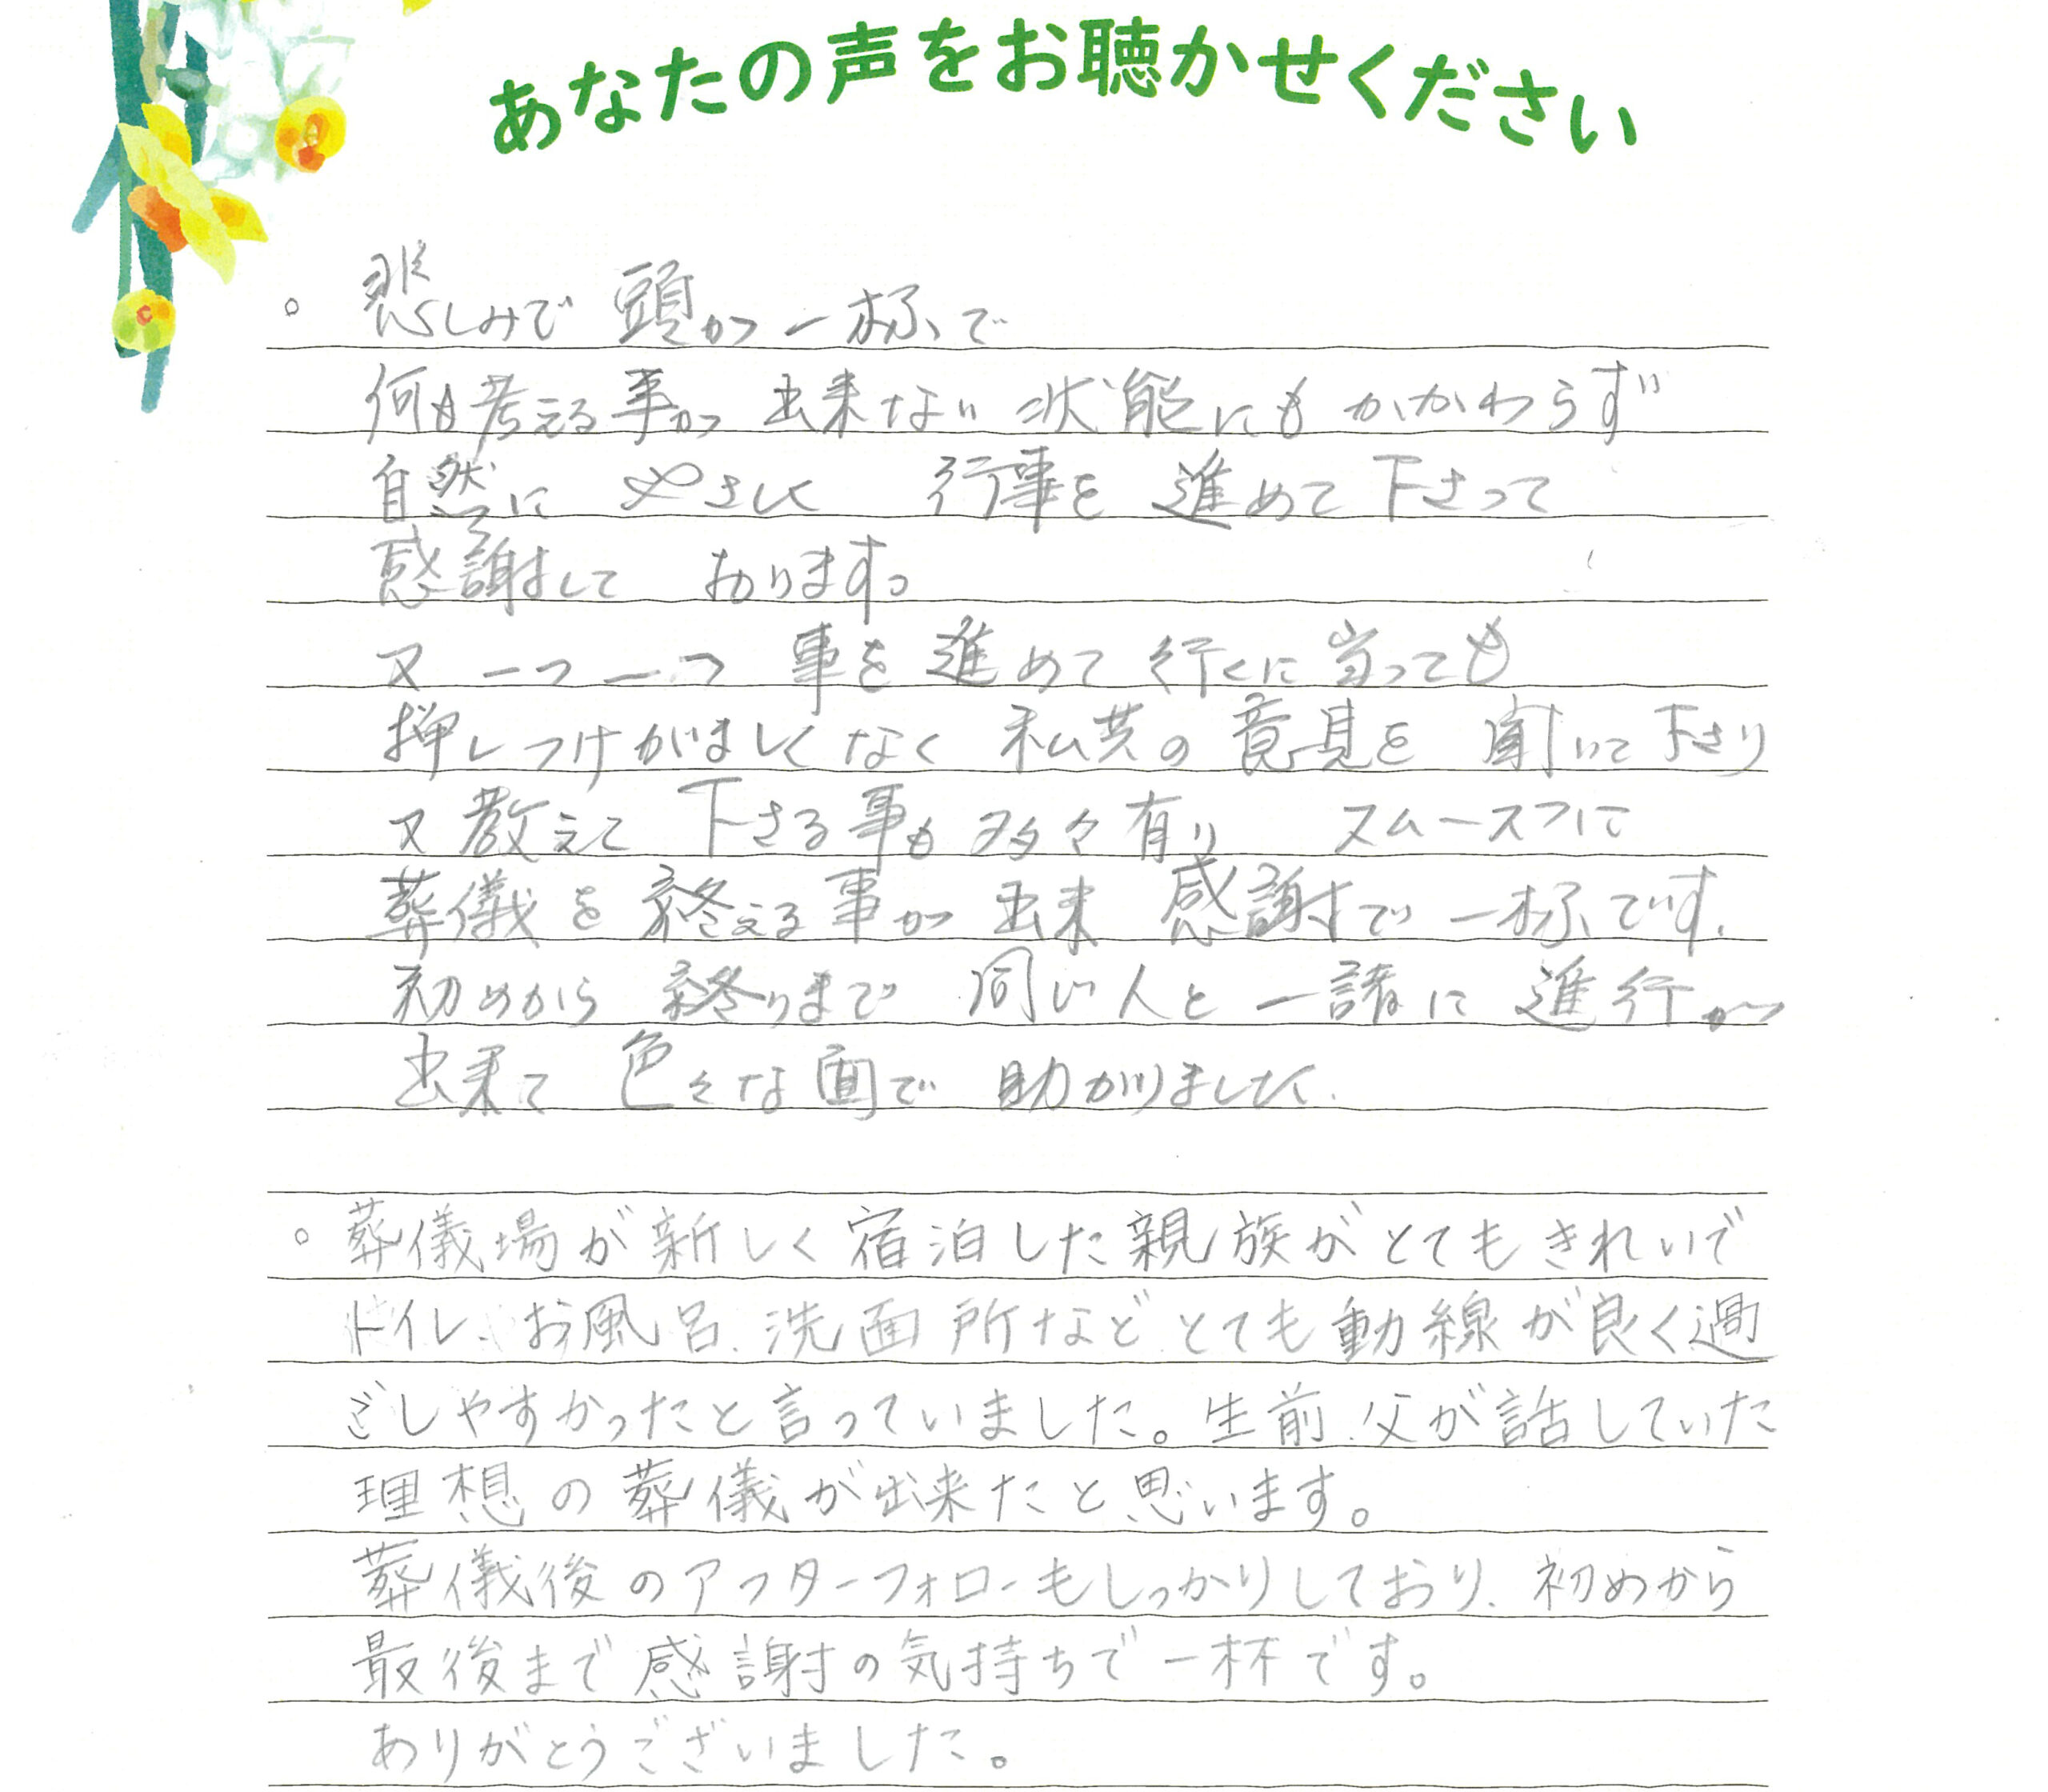 あなたの声をお聴かせください
○ 悲しみで 頭が一杯で
何も考える事が 出来ない 状態にもかかわらず
自然に やさしく 行事を 進めて下さって
感謝して おります。
又 一つ一つ 事を 進めて 行くに 当っても
押しつけがましくなく 私共の 意見を 聞いて下さり
又 教えて 下さる事も 多々有り スムースに
葬儀を 終える事が 出来 感謝で 一杯です.
初めから 終りまで 同じ人と 一諸に 進行が
出来て 色々な面で 助かりました.
○ 葬儀場が新しく宿泊した親族がとてもきれいで
トイレ、お風呂、洗面所などとても動線が良く過
ごしやすかったと言っていました。生前、父が話していた
理想の葬儀が出来たと思います。
葬儀後のアフターフォローもしっかりしており、初めから
最後まで感謝の気持ちで一杯です。
ありがとうございました。